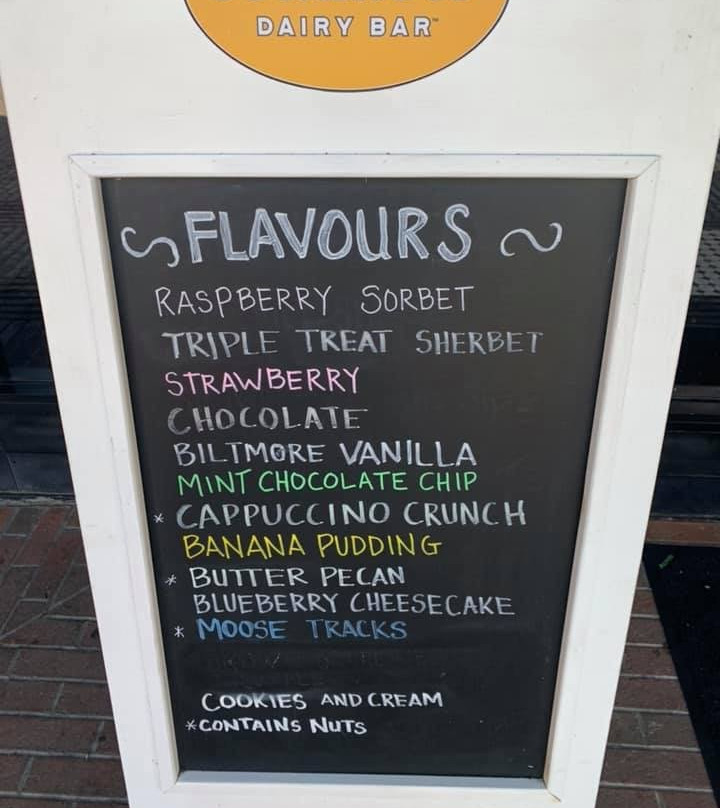 DAIRY BAR™
FLAVOURS
RASPBERRY SORBET
TRIPLE TREAT SHERBET
STRAWBERRY
CHOCOLATE
BILTMORE VANILLA
MINT CHOCOLATE CHIP
* CAPPUCCINO CRUNCH
BANANA PUDDING
* BUTTER PECAN
BLUEBERRY CHEESECAKE
* MOOSE TRACKS
COOKIES AND CREAM
*CONTAINS NUTS